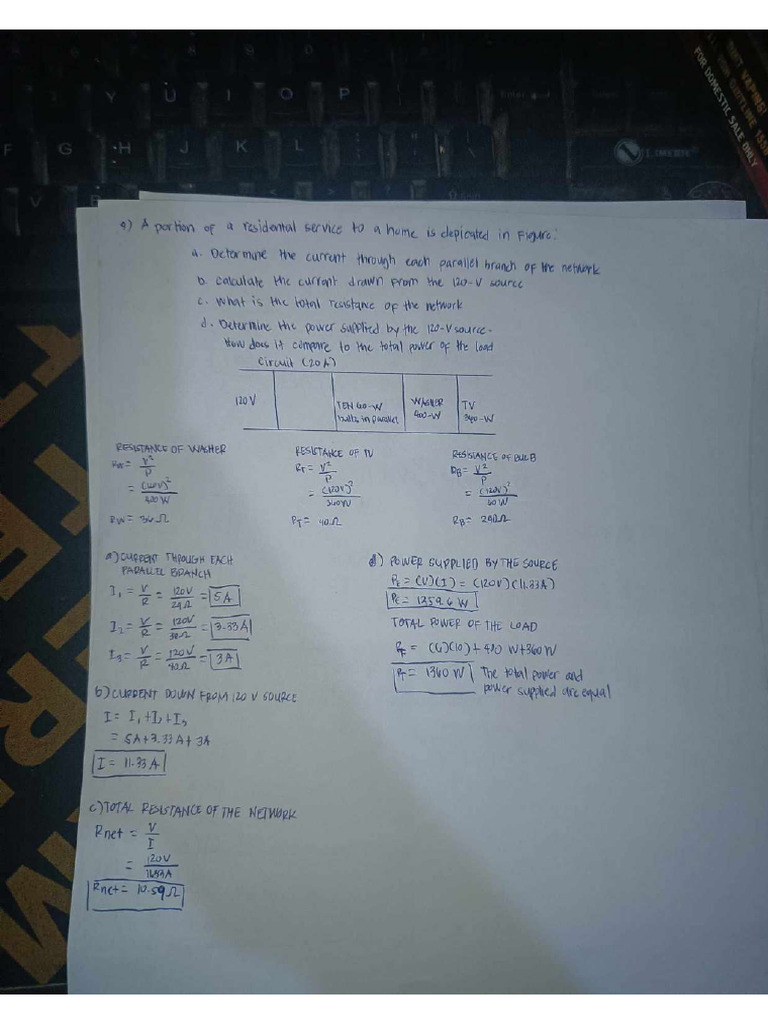 Y U I O P
F G H J K L
V B
FOR DOMESTIC SALE ONLY
9) A portion of a residental service to a home is depicated in Figure:
a. Determine the current through each parallel branch of the network
b. calculate the current drawn from the 120-V source
c. What is the total resistance of the network
d. Determine the power supplied by the 120-V source.
How does it compare to the total power of the load
Circuit (20A)
120V
TEN 60-W
bulbs in parallel
WASHER
400-W
TV
360-W
RESISTANCE OF WASHER
Rw = V²
P
= (120V)²
400W
Rw = 36Ω
RESISTANCE OF TV
RT = V²
P
= (120V)²
360W
RT = 40Ω
RESISTANCE OF BULB
RB = V²
P
= (120V)²
60W
RB = 240Ω
a) CURRENT THROUGH EACH
PARALLEL BRANCH
I₁ = V/R = 120V/24Ω = 5A
I₂ = V/R = 120V/36Ω = 3.33A
I₃ = V/R = 120V/40Ω = 3A
b) CURRENT DOWN FROM 120 V SOURCE
I = I₁ + I₂ + I₃
= 5A + 3.33A + 3A
I = 11.33A
c) TOTAL RESISTANCE OF THE NETWORK
Rnet = V
I
= 120V
Rnet = 10.59Ω
d) POWER SUPPLIED BY THE SOURCE
= (V)(I) = (120V)(11.33A)
= 1359.6 W
TOTAL POWER OF THE LOAD
= (6)(10) + 400 W + 360W
PT = 1360 W
The total power and
power supplied are equal